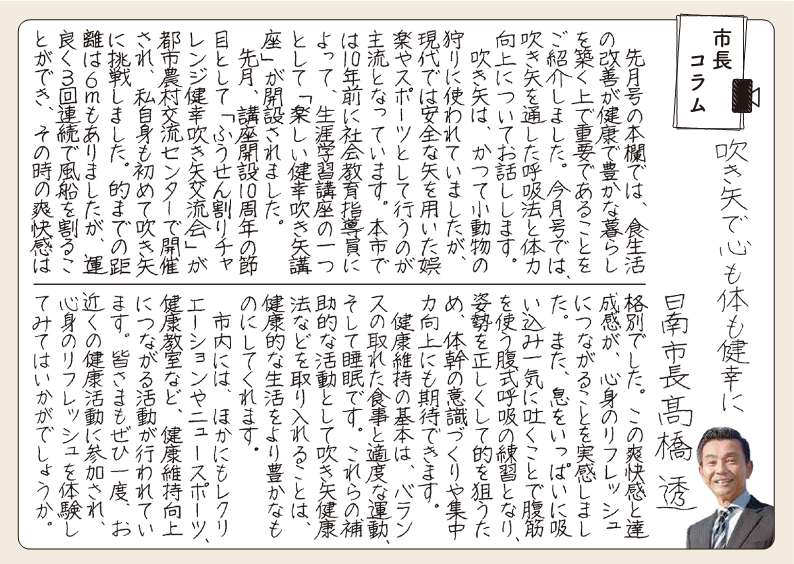 市長
コラム
吹き矢で心も体も健幸に
日南市長 髙橋 透
先月号の本欄では、食生活
の改善が健康で豊かな暮らし
を築く上で重要であることを
ご紹介しました。今月号では、
吹き矢を通した呼吸法と体力
向上についてお話しします。
吹き矢は、かつて小動物の
狩りに使われていましたが、
現代では安全な矢を用いた娯
楽やスポーツとして行うのが
主流となっています。本市で
は10年前に社会教育指導員に
よって、生涯学習講座の一つ
として「楽しい健幸吹き矢講
座」が開設されました。
先月、講座開設10周年の節
目として「ふうせん割りチャ
レンジ健幸吹き矢交流会」が
都市農村交流センターで開催
され、私自身も初めて吹き矢
に挑戦しました。的までの距
離は6mもありましたが、運
良く3回連続で風船を割るこ
とができ、その時の爽快感は
格別でした。この爽快感と達
成感が、心身のリフレッシュ
につながることを実感しまし
た。また、息をいっぱいに吸
い込み一気に吐くことで腹筋
を使う腹式呼吸の練習となり、
姿勢を正しくして的を狙うた
め、体幹の意識づくりや集中
力向上にも期待できます。
健康維持の基本は、バラン
スの取れた食事と適度な運動、
そして睡眠です。これらの補
助的な活動として吹き矢健康
法などを取り入れることは、
健康的な生活をより豊かなも
のにしてくれます。
市内には、ほかにもレクリ
エーションやニュースポーツ、
健康教室など、健康維持向上
につながる活動が行われてい
ます。皆さまもぜひ一度、お
近くの健康活動に参加され、
心身のリフレッシュを体験し
てみてはいかがでしょうか。